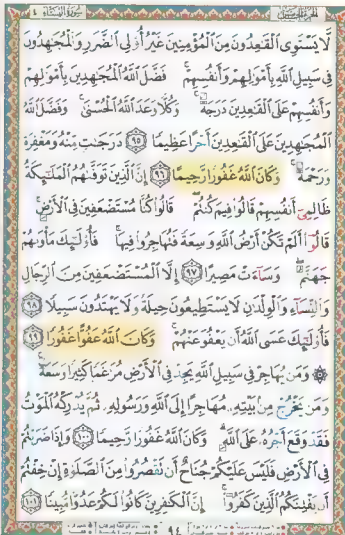 الجزء الخامس سورة النساء ٤
لَّا يَسْتَوِى الْقَاعِدُونَ مِنَ الْمُؤْمِنِينَ غَيْرُ أُو۟لِى الضَّرَرِ وَالْمُجَاهِدُونَ
فِى سَبِيلِ اللَّهِ بِأَمْوَالِهِمْ وَأَنفُسِهِمْ ۚ فَضَّلَ اللَّهُ الْمُجَاهِدِينَ بِأَمْوَالِهِمْ
وَأَنفُسِهِمْ عَلَى الْقَاعِدِينَ دَرَجَةً ۚ وَكُلًّا وَعَدَ اللَّهُ الْحُسْنَىٰ ۚ وَفَضَّلَ اللَّهُ
الْمُجَاهِدِينَ عَلَى الْقَاعِدِينَ أَجْرًا عَظِيمًا ٩٥ دَرَجَاتٍ مِّنْهُ وَمَغْفِرَةً
وَرَحْمَةً ۚ وَكَانَ اللَّهُ غَفُورًا رَّحِيمًا ٩٦ إِنَّ الَّذِينَ تَوَفَّاهُمُ الْمَلَائِكَةُ
ظَالِمِى أَنفُسِهِمْ قَالُوا فِيمَ كُنتُمْ ۖ قَالُوا كُنَّا مُسْتَضْعَفِينَ فِى الْأَرْضِ ۚ
قَالُوا أَلَمْ تَكُنْ أَرْضُ اللَّهِ وَاسِعَةً فَتُهَاجِرُوا فِيهَا ۚ فَأُو۟لَٰئِكَ مَأْوَاهُمْ
جَهَنَّمُ ۖ وَسَاءَتْ مَصِيرًا ٩٧ إِلَّا الْمُسْتَضْعَفِينَ مِنَ الرِّجَالِ
وَالنِّسَاءِ وَالْوِلْدَانِ لَا يَسْتَطِيعُونَ حِيلَةً وَلَا يَهْتَدُونَ سَبِيلًا ٩٨
فَأُو۟لَٰئِكَ عَسَى اللَّهُ أَن يَعْفُوَ عَنْهُمْ ۚ وَكَانَ اللَّهُ عَفُوًّا غَفُورًا ٩٩
۞ وَمَن يُهَاجِرْ فِى سَبِيلِ اللَّهِ يَجِدْ فِى الْأَرْضِ مُرَاغَمًا كَثِيرًا وَسَعَةً ۚ
وَمَن يَخْرُجْ مِن بَيْتِهِ مُهَاجِرًا إِلَى اللَّهِ وَرَسُولِهِ ثُمَّ يُدْرِكْهُ الْمَوْتُ
فَقَدْ وَقَعَ أَجْرُهُ عَلَى اللَّهِ ۗ وَكَانَ اللَّهُ غَفُورًا رَّحِيمًا ١٠٠ وَإِذَا ضَرَبْتُمْ
فِى الْأَرْضِ فَلَيْسَ عَلَيْكُمْ جُنَاحٌ أَن تَقْصُرُوا مِنَ الصَّلَاةِ إِنْ خِفْتُمْ
أَن يَفْتِنَكُمُ الَّذِينَ كَفَرُوا ۚ إِنَّ الْكَافِرِينَ كَانُوا لَكُمْ عَدُوًّا مُّبِينًا ١٠١
٩٤